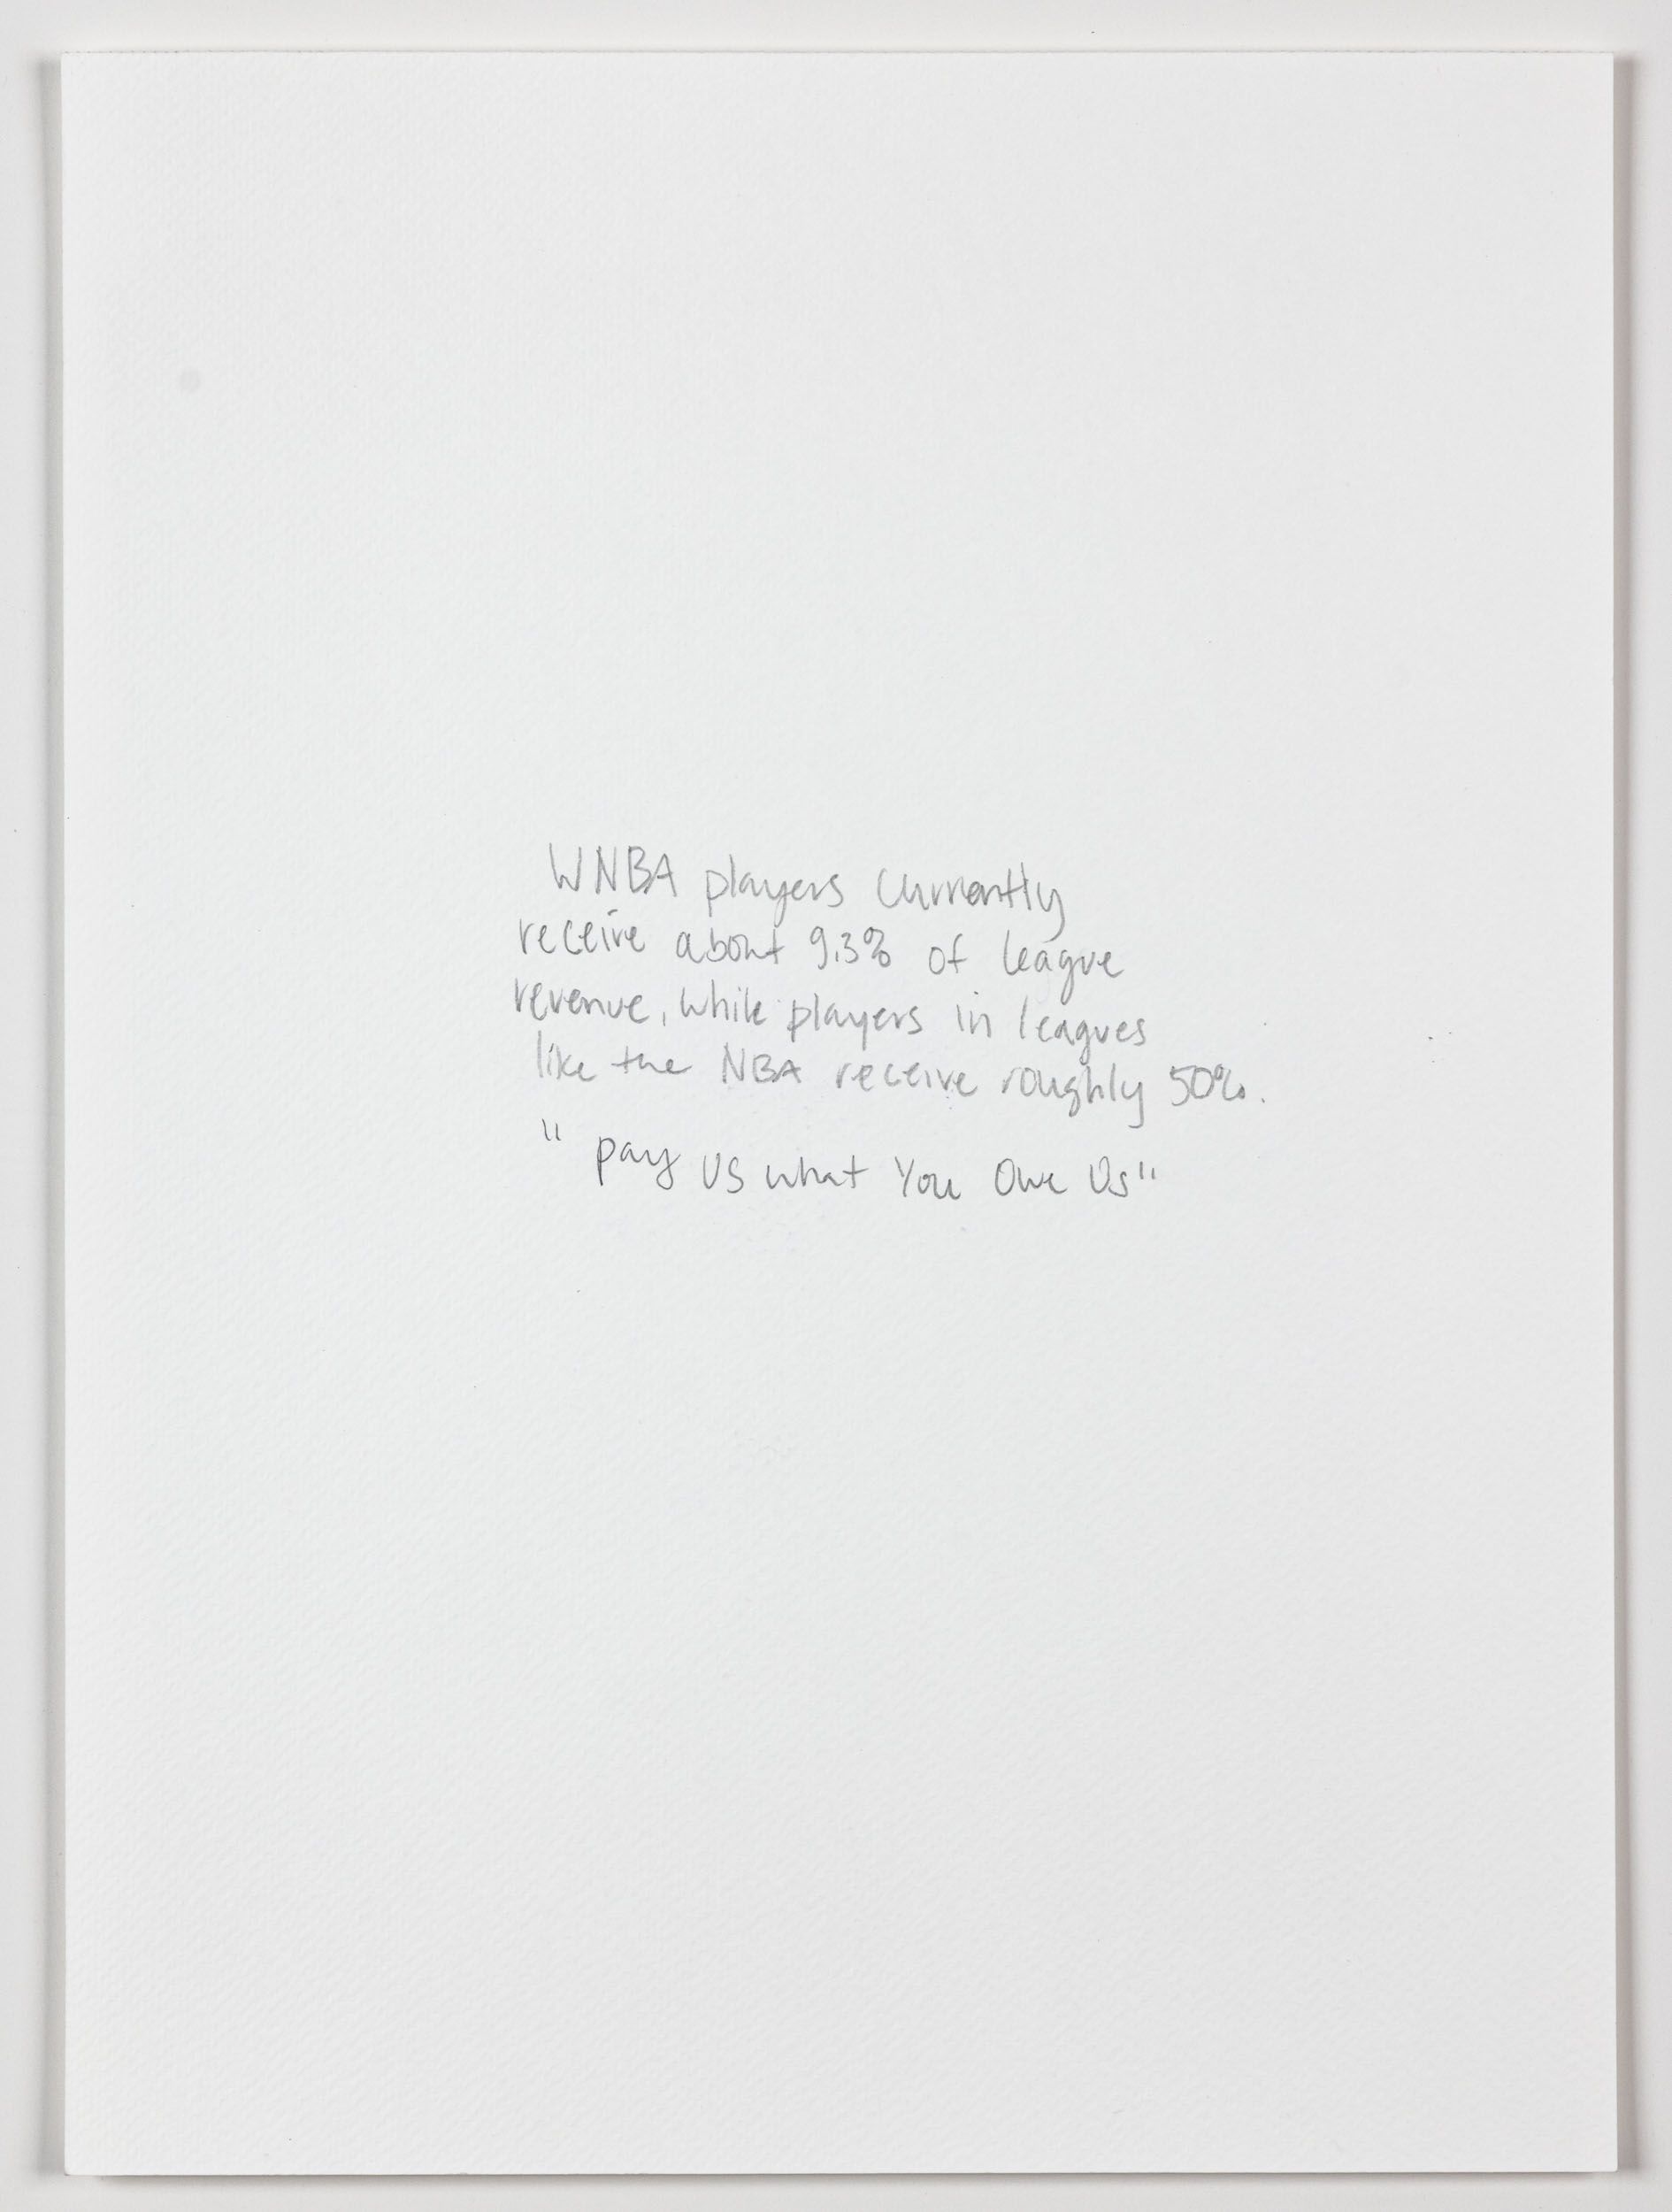 WNBA players currently
receive about 9.3% of league
revenue, while players in leagues
like the NBA receive roughly 50%.
" pay us what You Owe Us"